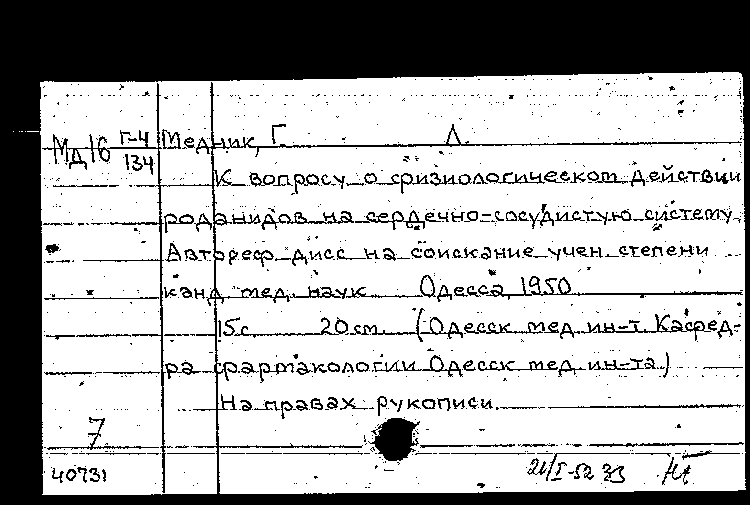 Мд16 Г-4/134 Медник, Г. Л.
К вопросу о физиологическом действии
роданидов на сердечно-сосудистую систему.
Автореф. дисс. на соискание учен. степени
канд. мед. наук Одесса, 1950
15с. 20см. (Одесск. мед. ин-т. Кафед-
ра фармакологии Одесск. мед. ин-та.)
На правах рукописи.
7
40731 21/I-52